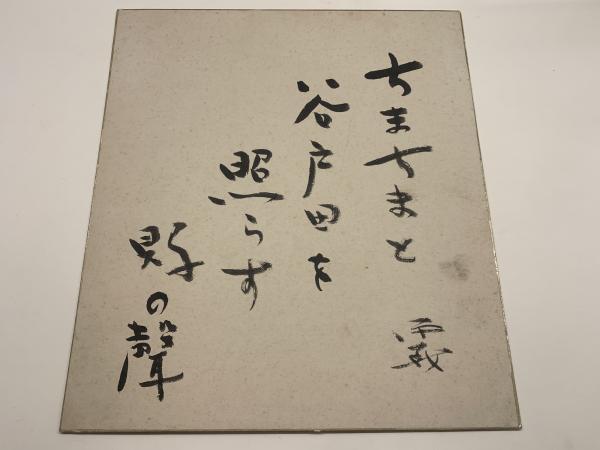 ちまちまと
谷戸田を
照らす
の聲